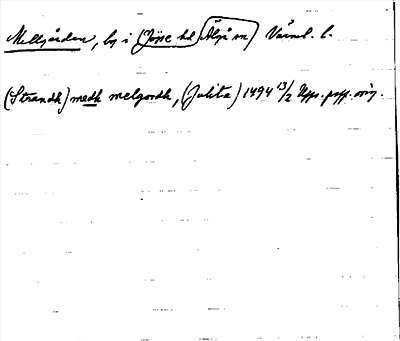 Mellgården, by i (Jösse hd) Älgå sn) Värml. l.
(Strandh) medh melgordh, (Julita) 1494 13/2 Upps. papp. orig.